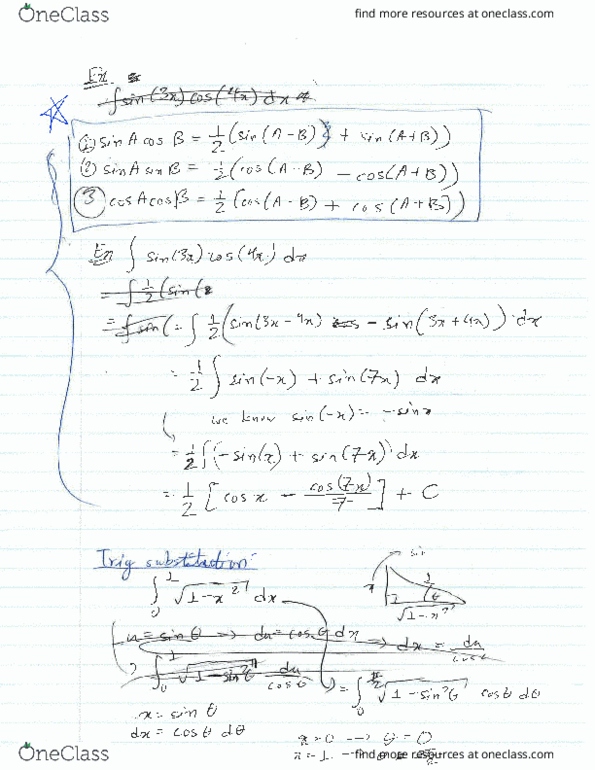 OneClass find more resources at oneclass.com
Ex.
∫ sin(3x) cos(4x) dx
① sin A cos B = 1/2 (sin(A-B) + sin(A+B))
② sin A sin B = 1/2 (cos(A-B) - cos(A+B))
③ cos A cos B = 1/2 [cos(A-B) + cos(A+B])
Ex ∫ sin(3x) cos(4x) dx
= ∫ 1/2 (sin(
= ∫ sin( = ∫ 1/2 (sin(3x-4x) - sin(3x+4x)) dx
= 1/2 ∫ sin(-x) + sin(7x) dx
we know sin(-x) = -sin x
= 1/2 ∫(-sin(x) + sin(7x)) dx
= 1/2 [cos x - cos(7x)/7] + C
Trig substitution:
sin
∫₀¹ √(1-x²) dx
x 1 θ
√(1-x²)
u = sin θ => du = cos θ dx => dx = du/cos θ
∫₀¹ √(1-sin²θ) du/cos θ = ∫₀^(π/2) √(1-sin²θ) cos θ dθ
x = sin θ
dx = cos θ dθ
x = 0 → θ = 0
x = 1
OneClass find more resources at oneclass.com